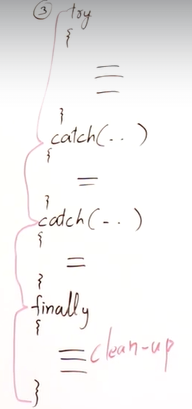 ③ try
{
}
catch(..)
{
}
catch(-..)
{
}
finally
{
clean-up
}